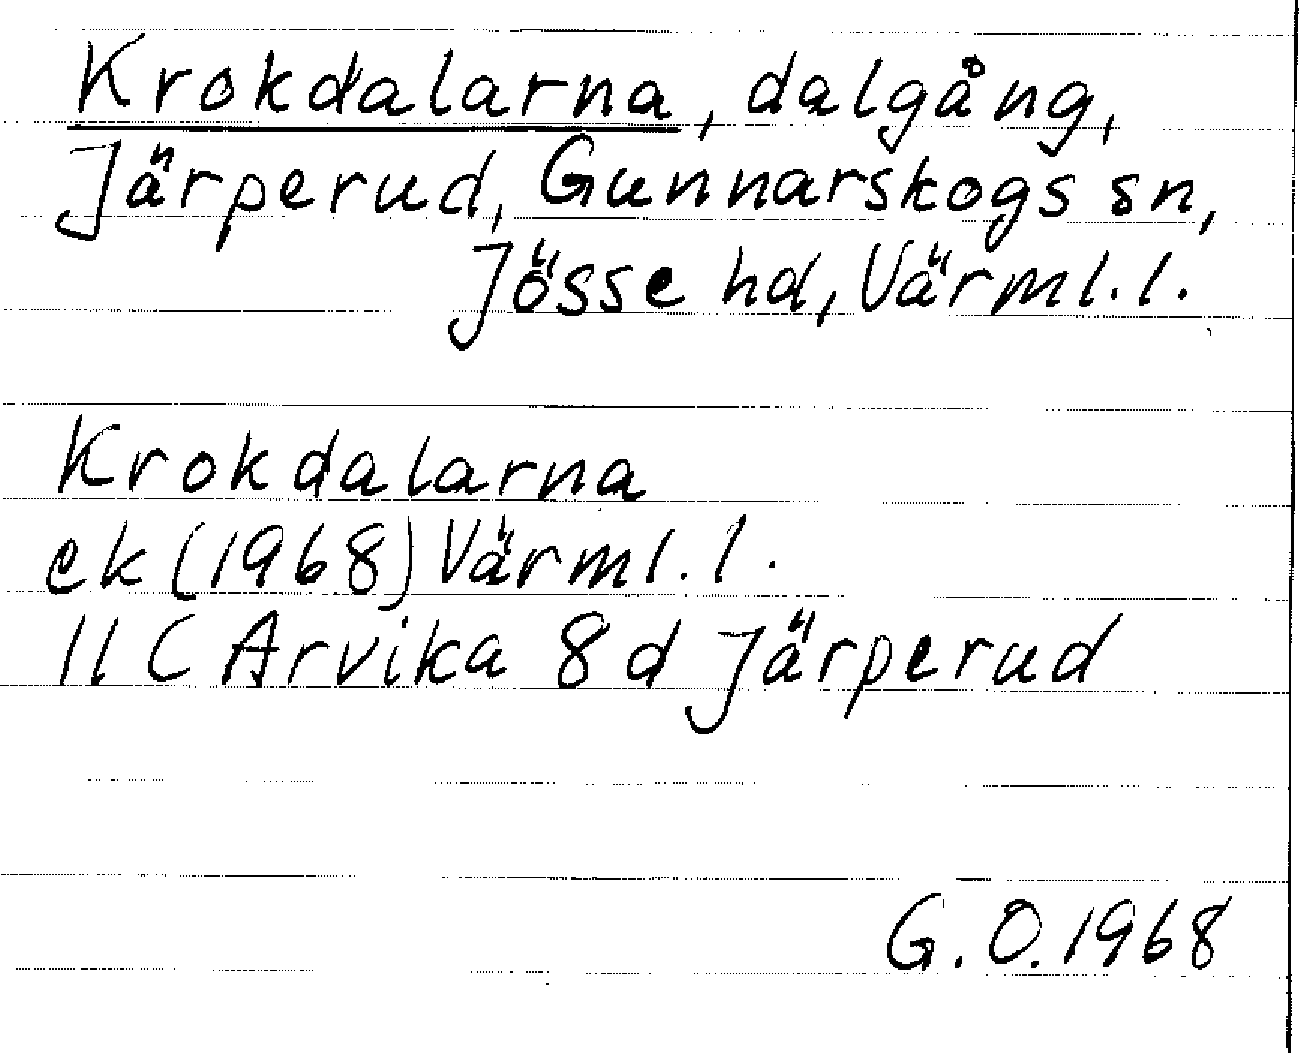 Krokdalarna, dalgång,
Järperud, Gunnarskogs sn,
Jösse hd, Värml. l.
Krokdalarna
ek (1968) Värml. l.
11 C Arvika 8 d Järperud
G. O. 1968